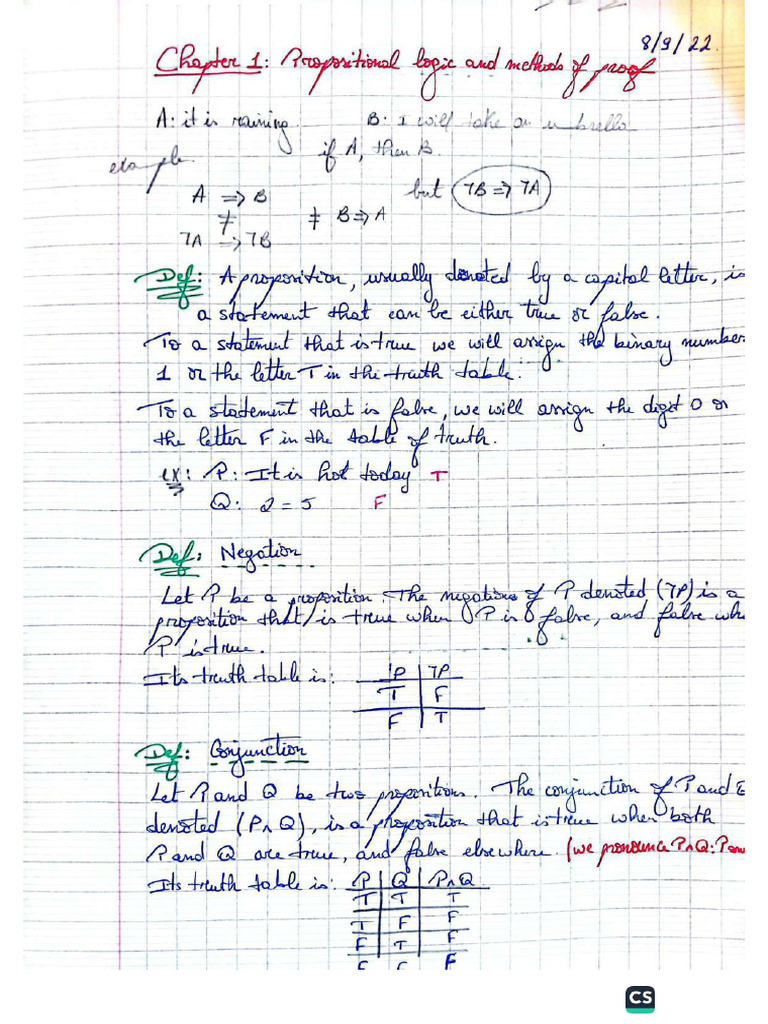 8/9/22.
Chapter 1: Propositional logic and methods of proof
A: it is raining. B: I will take an umbrella
example if A, then B.
A => B but ¬B => ¬A
≠ ≠ B => A
¬A -> ¬B
Def: A proposition, usually denoted by a capital letter, is
a statement that can be either true or false.
To a statement that is true we will assign the binary number
1 or the letter T in the truth table.
To a statement that is false, we will assign the digit 0 or
the letter F in the table of truth.
ex: P: It is hot today T
Q: 2 = 5 F
Def: Negation
Let P be a proposition. The negations of P denoted (¬P) is a
proposition that is true when P is false, and false whe
P is true.
Its truth table is: P ¬P
T F
F T
Def: Conjunction
Let P and Q be two propositions. The conjunction of P and Q
denoted (P∧Q), is a proposition that is true when both
P and Q are true, and false elsewhere. (we pronounce P∧Q: P and
Its truth table is: P Q P∧Q
T T T
T F F
F T F
F F F
CS